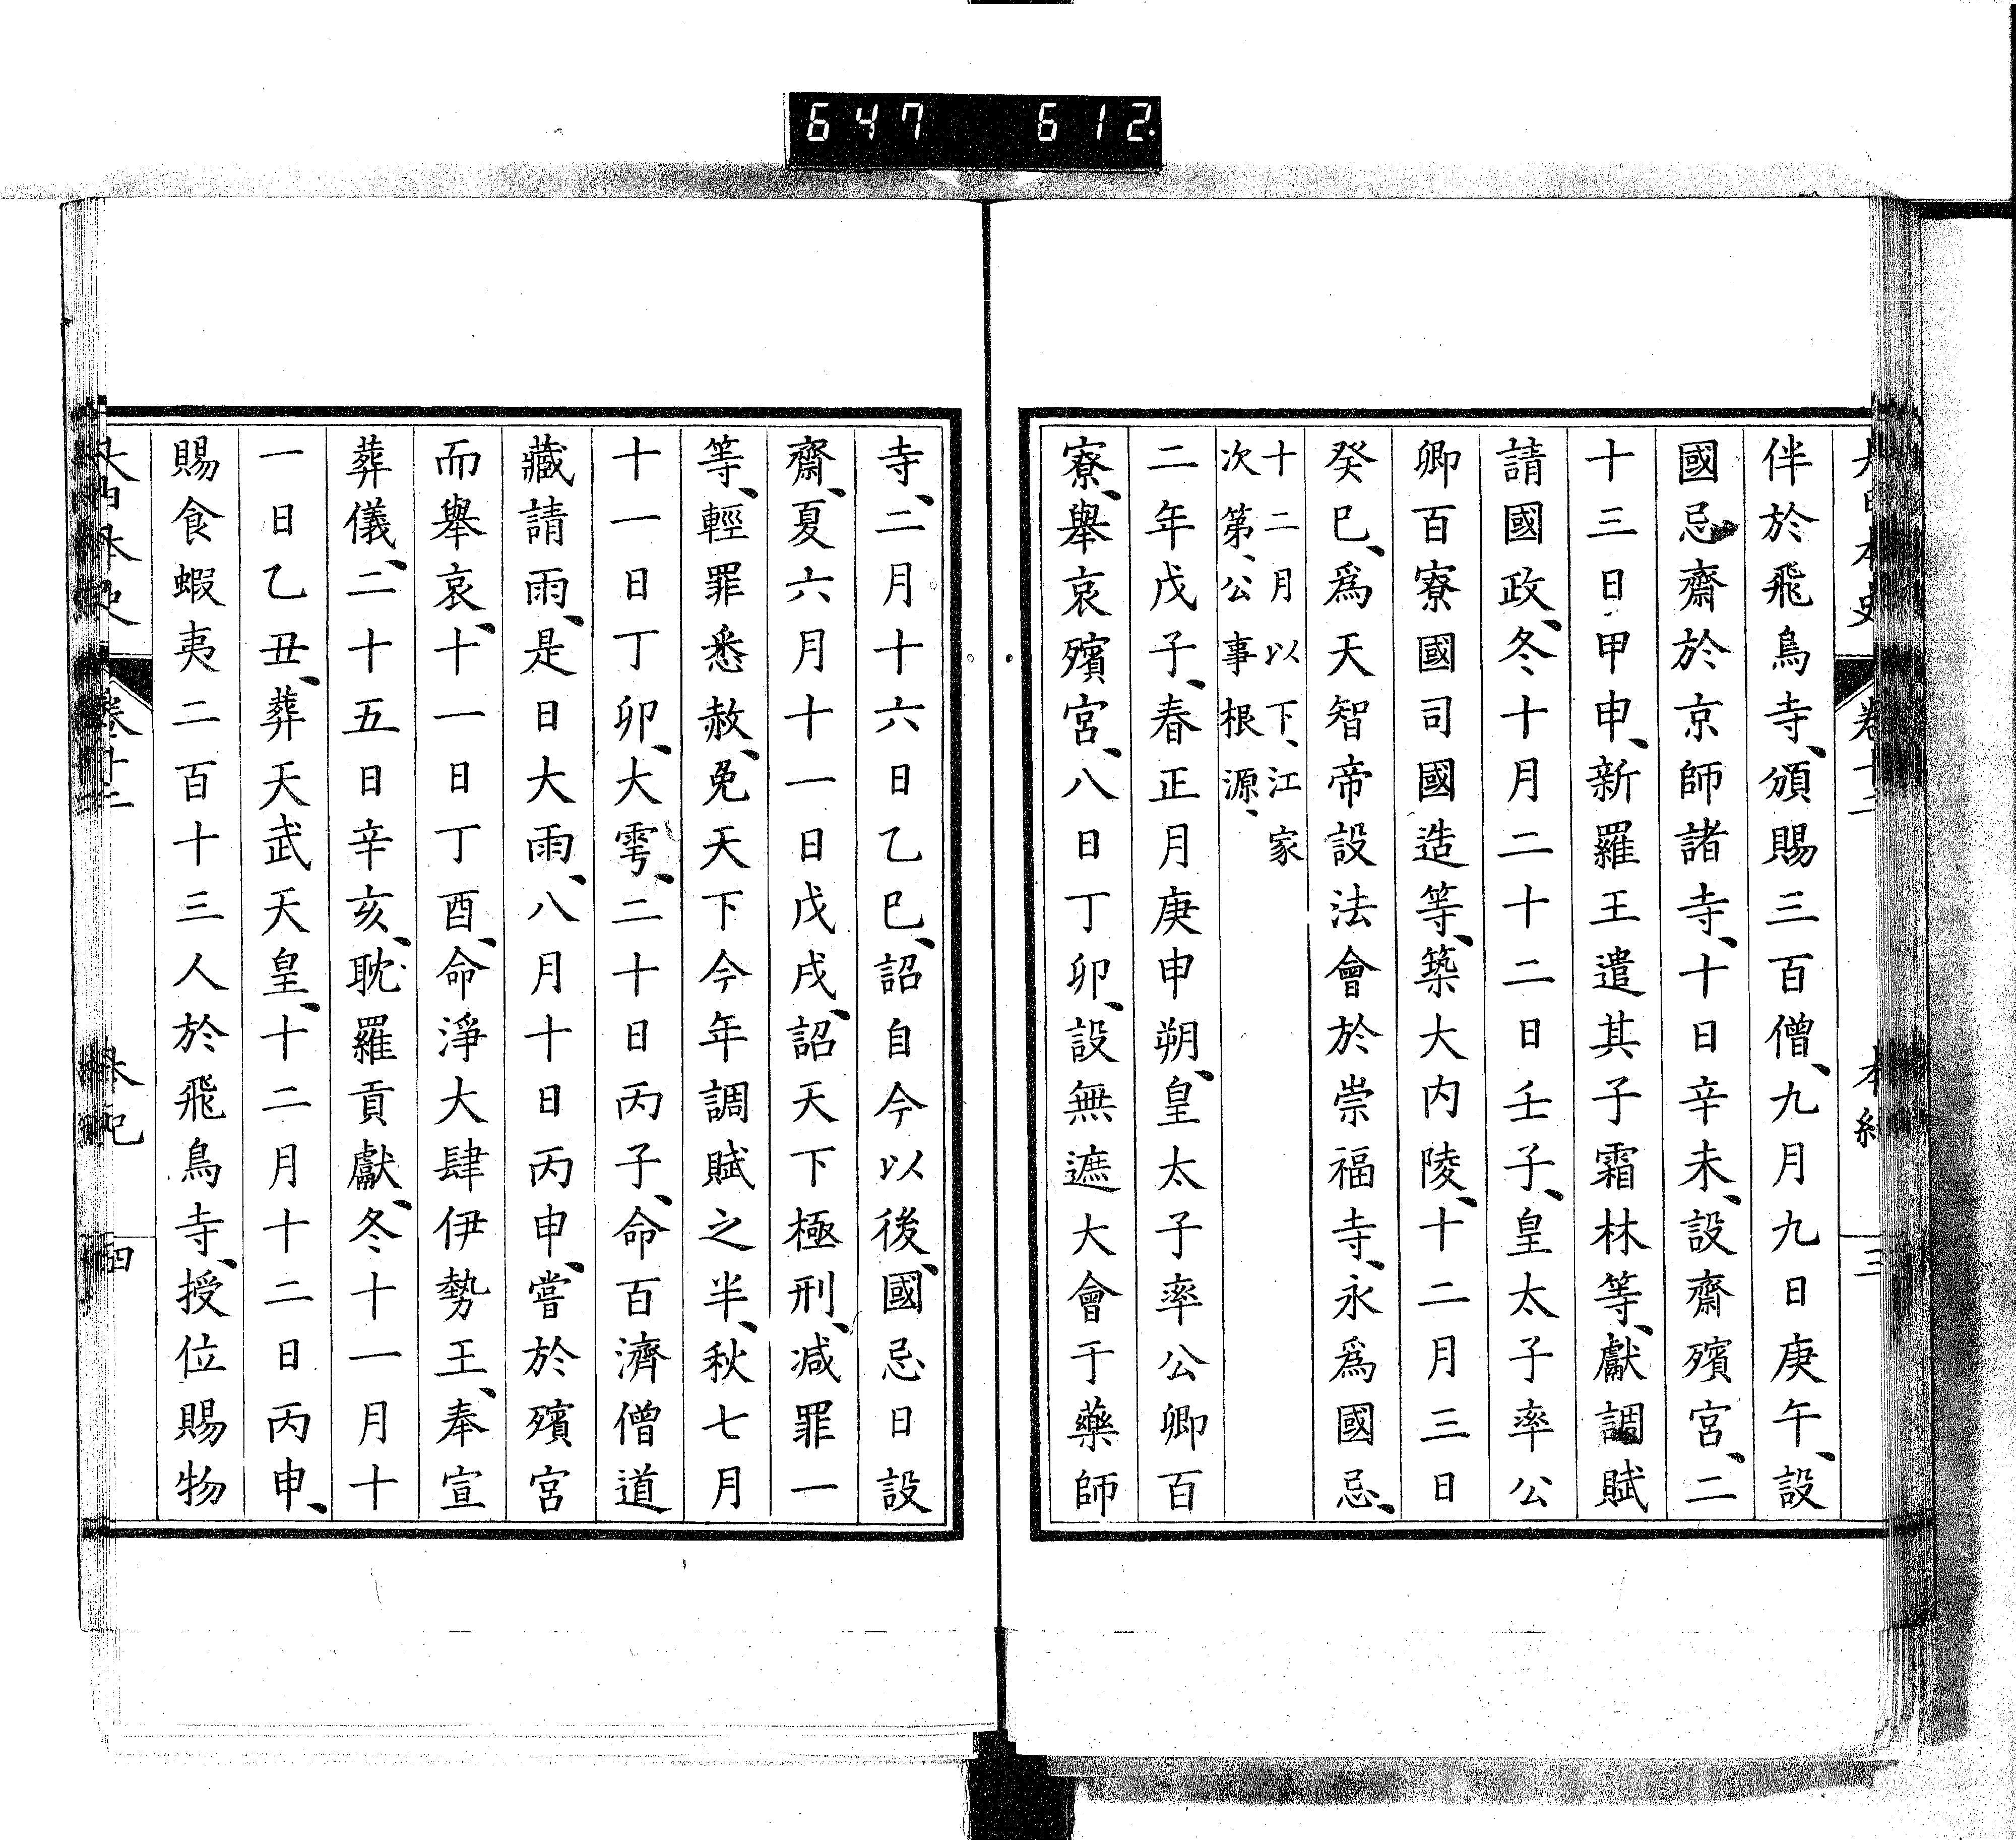 647 612.
大日本史 卷十二 本紀 三
伴於飛鳥寺、頒賜三百僧、九月九日庚午、設
國忌齋於京師諸寺、十日辛未、設齋殯宮、二
十三日甲申、新羅王遣其子霜林等、獻調賦
請國政、冬十月二十二日壬子、皇太子率公
卿百寮國司國造等、築大内陵、十二月三日
癸巳、爲天智帝設法會於崇福寺、永爲國忌、
十二月以下、江家
次第、公事根源、
二年戊子、春正月庚申朔、皇太子率公卿百
寮、舉哀殯宮、八日丁卯、設無遮大會于藥師
寺、二月十六日乙巳、詔自今以後、國忌日設
齋、夏六月十一日戊戌、詔天下極刑、減罪一
等、輕罪悉赦、免天下今年調賦之半、秋七月
十一日丁卯、大雩、二十日丙子、命百濟僧道
藏請雨、是日大雨、八月十日丙申、嘗於殯宮
而舉哀、十一日丁酉、命淨大肆伊勢王、奉宣
葬儀、二十五日辛亥、耽羅貢獻、冬十一月十
一日乙丑、葬天武天皇、十二月十二日丙申、
賜食蝦夷二百十三人於飛鳥寺、授位賜物
大日本史 卷十二 本紀 四